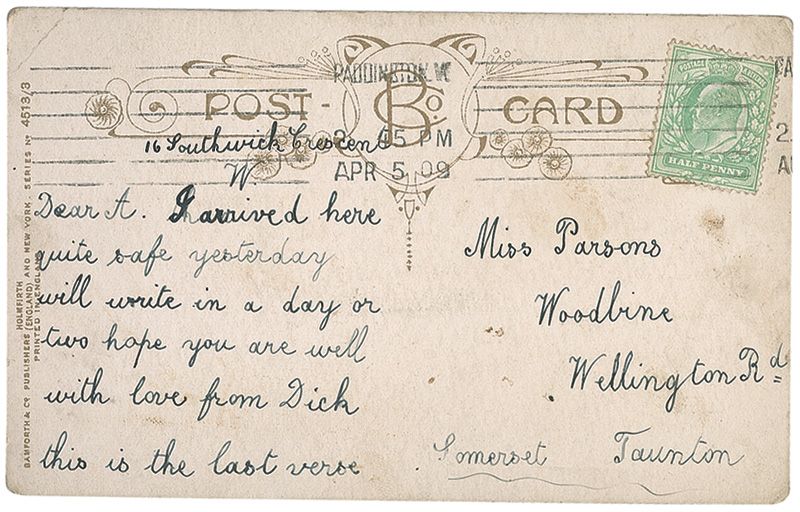 BAMFORTH & Co PUBLISHERS (ENGLAND) AND NEW YORK. SERIES No 4513/3
HOLMFIRTH
PRINTED IN ENGLAND
POST-CARD
B Co.
PADDINGTON. W
2. 45 PM
APR 5 09
POSTAGE
HALF PENNY
16 Southwick Crescent
W.
Dear A. I arrived here
quite safe yesterday
will write in a day or
two hope you are well
with love from Dick
this is the last verse
Miss Parsons
Woodbine
Wellington Rd
Somerset Taunton